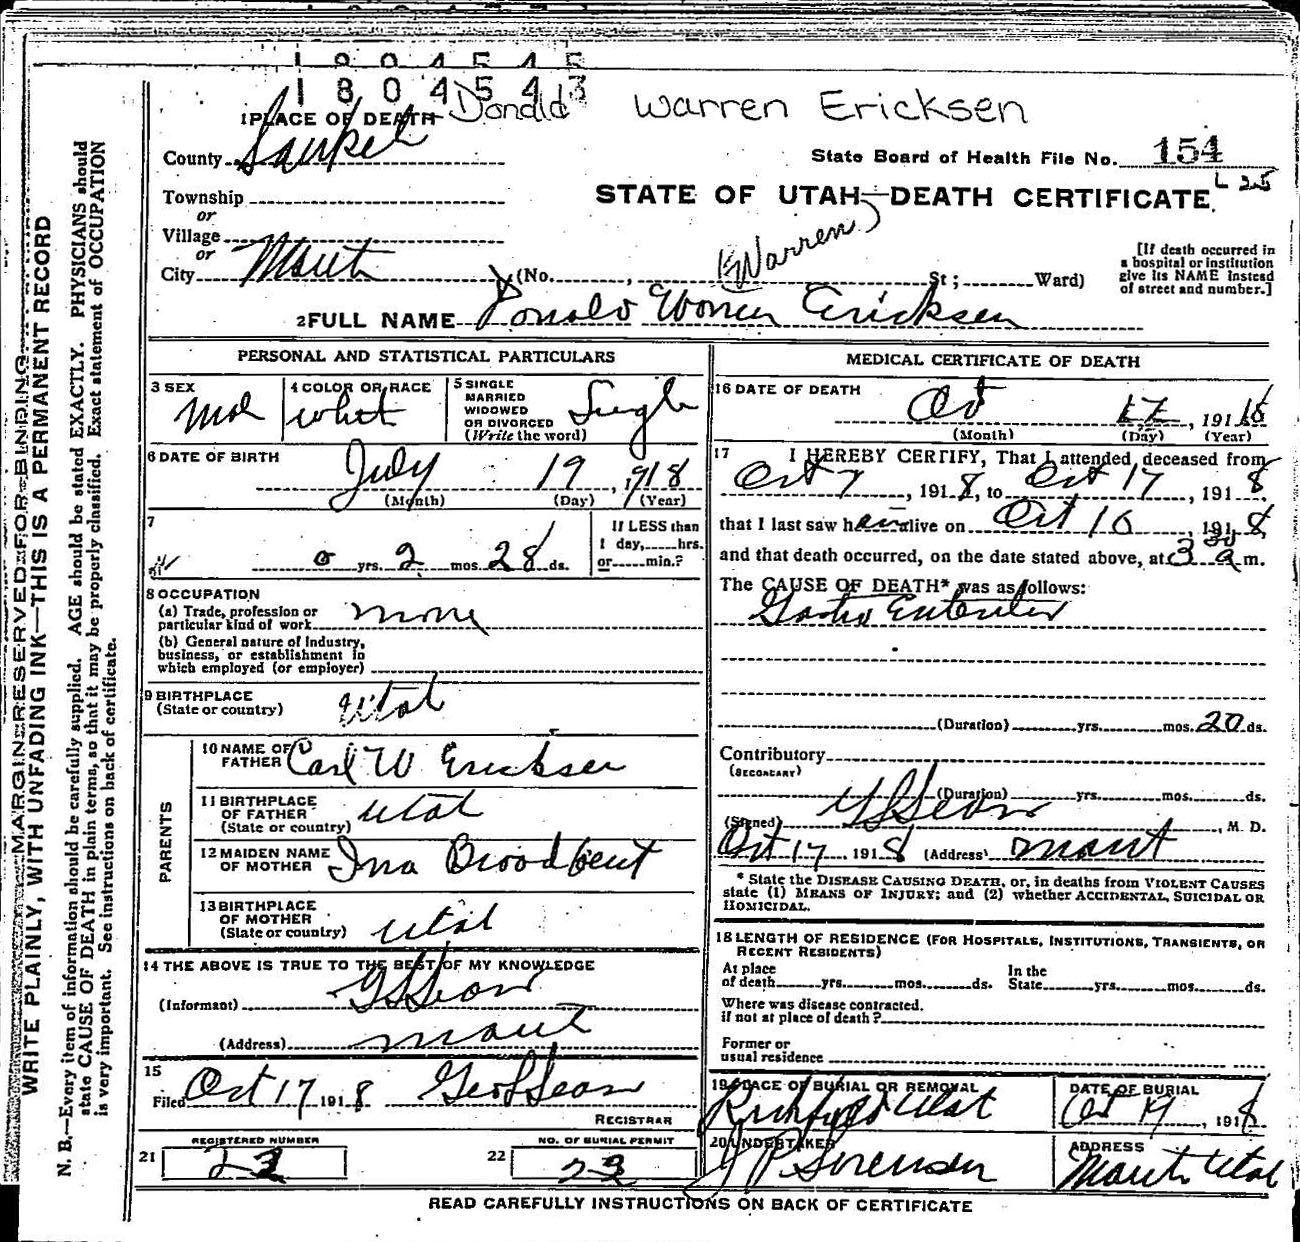 1804545
1804543
Donald Warren Ericksen
1 PLACE OF DEATH
County Sanpete
State Board of Health File No. 154
L 25
Township
or
Village
or
City Manti
STATE OF UTAH—DEATH CERTIFICATE
(Warren)
(No. , St; Ward)
[If death occurred in a hospital or institution give its NAME instead of street and number.]
2 FULL NAME Donald Warren Ericksen
PERSONAL AND STATISTICAL PARTICULARS
3 SEX Mal
4 COLOR OR RACE whit
5 SINGLE MARRIED WIDOWED OR DIVORCED (Write the word) Singl
6 DATE OF BIRTH July 19, 1918
(Month) (Day) (Year)
7
0 yrs. 2 mos. 28 ds.
If LESS than 1 day, hrs. or min.?
8 OCCUPATION
(a) Trade, profession or particular kind of work none
(b) General nature of industry, business, or establishment in which employed (or employer)
9 BIRTHPLACE (State or country) Utah
PARENTS
10 NAME OF FATHER Carl W Ericksen
11 BIRTHPLACE OF FATHER (State or country) Utah
12 MAIDEN NAME OF MOTHER Ina Broodbent
13 BIRTHPLACE OF MOTHER (State or country) Utah
14 THE ABOVE IS TRUE TO THE BEST OF MY KNOWLEDGE
(Informant)
(Address) Manti
15
Filed Oct 17 1918
REGISTRAR
REGISTERED NUMBER
21 23
NO. OF BURIAL PERMIT
22 23
MEDICAL CERTIFICATE OF DEATH
16 DATE OF DEATH Oct 17, 1918
(Month) (Day) (Year)
17 I HEREBY CERTIFY, That I attended deceased from
Oct 7, 1918, to Oct 17, 1918
that I last saw h alive on Oct 16, 1918
and that death occurred, on the date stated above, at 3 30 a m.
The CAUSE OF DEATH* was as follows:
Gastro Enteritis
(Duration) yrs. mos. 20 ds.
Contributory
(SECONDARY)
(Duration) yrs. mos. ds.
(Signed) , M. D.
Oct 17, 1918 (Address) Manti
* State the DISEASE CAUSING DEATH, or, in deaths from VIOLENT CAUSES state (1) MEANS OF INJURY; and (2) whether ACCIDENTAL, SUICIDAL OR HOMICIDAL.
18 LENGTH OF RESIDENCE (FOR HOSPITALS, INSTITUTIONS, TRANSIENTS, OR RECENT RESIDENTS)
At place of death yrs. mos. ds. In the State yrs. mos. ds.
Where was disease contracted. if not at place of death?
Former or usual residence
19 PLACE OF BURIAL OR REMOVAL Richfield Utah
DATE OF BURIAL Oct 19, 1918
20 UNDERTAKER J P Sorensen
ADDRESS Manti Utah
READ CAREFULLY INSTRUCTIONS ON BACK OF CERTIFICATE
MARGIN RESERVED FOR BINDING
WRITE PLAINLY, WITH UNFADING INK—THIS IS A PERMANENT RECORD
N. B.—Every item of information should be carefully supplied. AGE should be stated EXACTLY. PHYSICIANS should
state CAUSE OF DEATH in plain terms, so that it may be properly classified. Exact statement of OCCUPATION
is very important. See instructions on back of certificate.